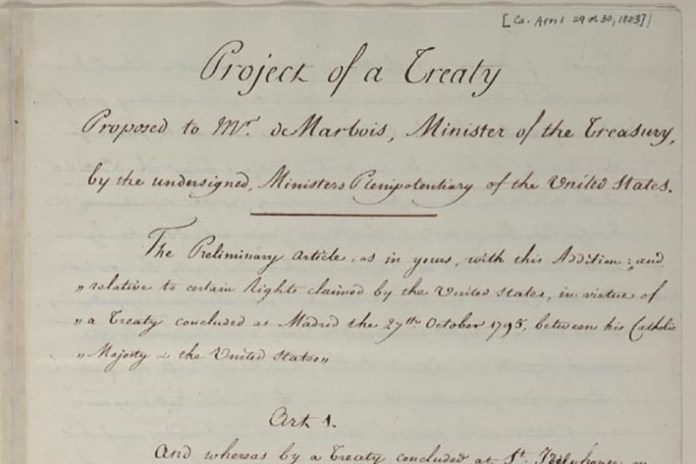 [Ca. April 29 or 30, 1803]
Project of a Treaty
Proposed to Mr. de Marbois, Minister of the Treasury,
by the undersigned, Ministers Plenipotentiary of the United States.
The Preliminary article, as in yours, with this Addition; and
„ relative to certain Rights claimed by the United States, in virtue of
„ a Treaty concluded at Madrid the 27th October 1795, between his Catholic
„ Majesty & the United States„
Art 1.
And whereas by a Treaty concluded at St. Ildephonso